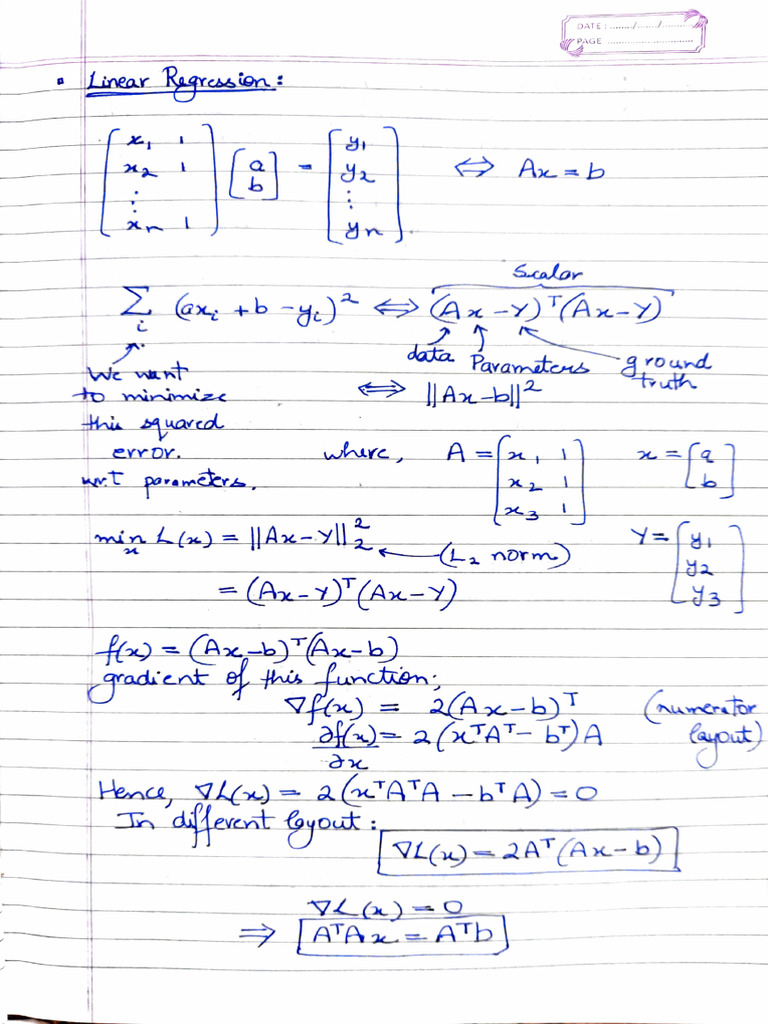 DATE : ......../......../........
PAGE ................................
• Linear Regression:
[x₁ 1; x₂ 1; ⋮; xₙ 1] [a; b] = [y₁; y₂; ⋮; yₙ] ⇔ Ax = b
Scalar
∑ᵢ (axᵢ + b - yᵢ)² ⇔ (Ax - Y)ᵀ(Ax - Y)
data Parameters ground truth
We want
to minimize ⇔ ||Ax - b||²
this squared
error. where, A = [x₁ 1; x₂ 1; x₃ 1] x = [a; b]
w.r.t parameters.
min L(x) = ||Ax - Y||₂² ← (L₂ norm) Y = [y₁; y₂; y₃]
x
= (Ax - Y)ᵀ(Ax - Y)
f(x) = (Ax - b)ᵀ(Ax - b)
gradient of this function;
∇f(x) = 2(Ax - b)ᵀ (numerator
∂f(x)/∂x = 2(xᵀAᵀ - bᵀ)A layout)
Hence, ∇L(x) = 2(xᵀAᵀA - bᵀA) = 0
In different layout:
∇L(x) = 2Aᵀ(Ax - b)
∇L(x) = 0
⇒ AᵀAx = Aᵀb